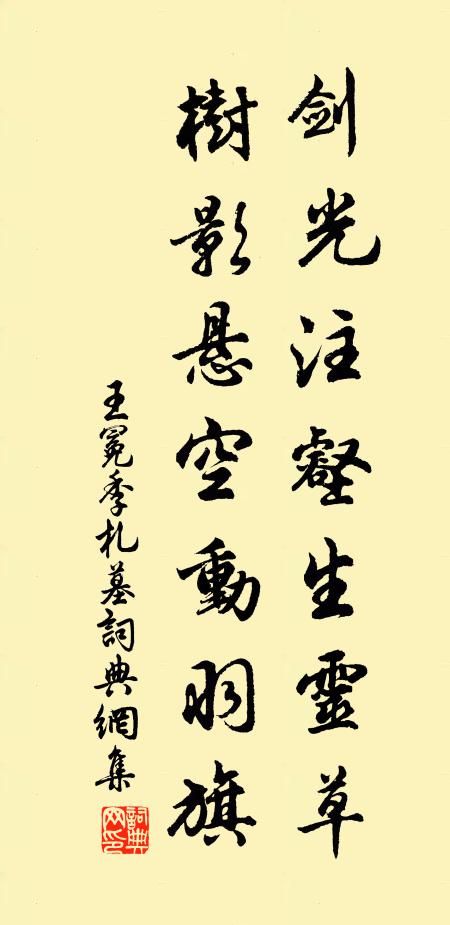 剑光注壑生靈草
樹影悬空動羽旗
王冕季札墓詞典網集
詞典網印